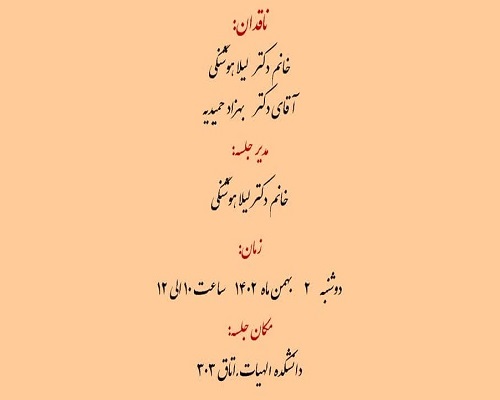 ناقدان:
خانم دکتر لیلا هوشنگی
آقای دکتر بهزاد حمیدیه
مدیر جلسه:
خانم دکتر لیلا هوشنگی
زمان:
دوشنبه ۲ بهمن ماه ۱۴۰۲ ساعت ۱۰ الی ۱۲
مکان جلسه:
دانشکده الهیات،اتاق ۳۰۳